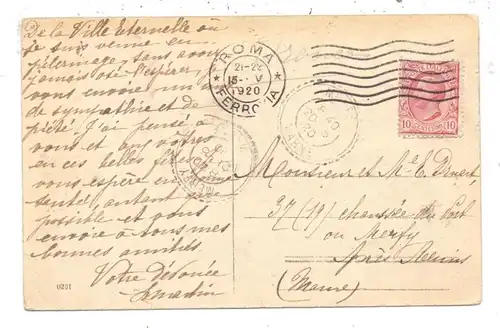 De la Ville Eternelle où
je suis venue en
pèlerinage, sans avoir
jamais osé l'espérer, je
vous envoie un mot
de sympathie et de
piété. J'ai pensé à
vous et aux vôtres
en ces belles fêtes,
vous espère en
santé, autant que
possible et vous
envoie à tous mes
bonnes amitiés
Votre dévouée
0201
ROMA
21-22
15 V
1920
FERROVIA
10 10
Monsieur et Me
37 (19) chaussée du Port
ou Merfy
Près Reims
(Marne)